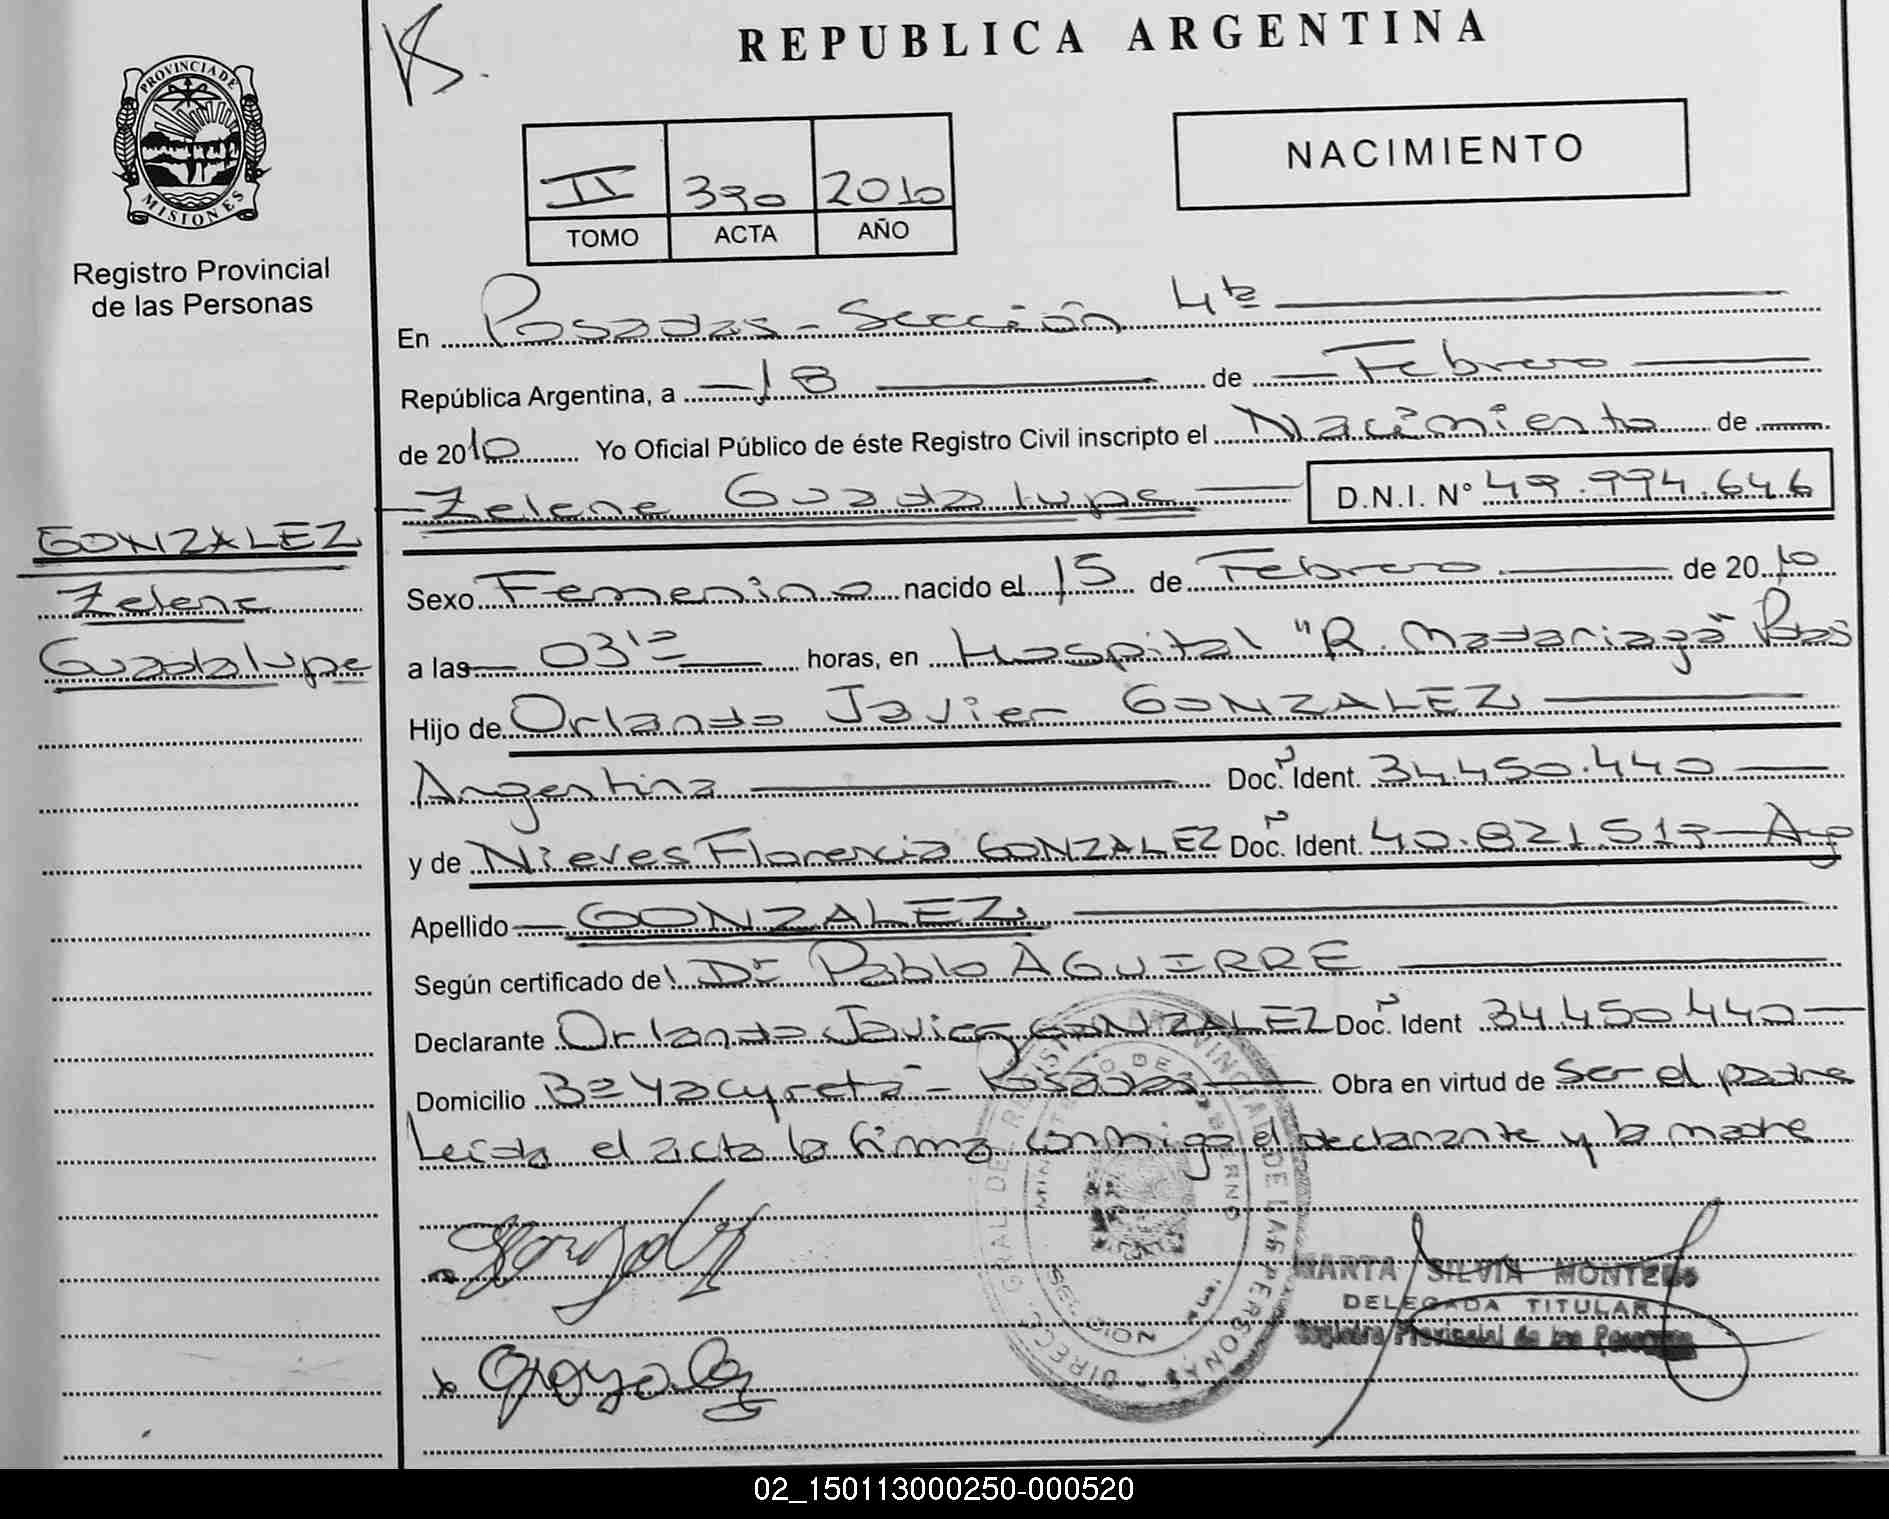 REPUBLICA ARGENTINA
PROVINCIA DE
MISIONES
Registro Provincial
de las Personas
NACIMIENTO
II 390 2010
TOMO ACTA AÑO
En Posadas - Sección 4ta
República Argentina, a 18 de Febrero
de 2010 Yo Oficial Público de éste Registro Civil inscripto el Nacimiento de
Zelene Guadalupe D.N.I. N° 49.994.646
GONZALEZ
Zelene
Guadalupe
Sexo Femenino nacido el 15 de Febrero de 2010
a las 03 horas, en Hospital "R. Madariaga" Pdas
Hijo de Orlando Javier GONZALEZ
Argentina Doc. Ident. 34.450.440
y de Nieves Florencia GONZALEZ Doc. Ident. 40.821.519 Arg
Apellido GONZALEZ
Según certificado del Dr Pablo AGUIRRE
Declarante Orlando Javier GONZALEZ Doc. Ident 34.450.440
Domicilio Bº Yacyreta - Posadas Obra en virtud de ser el padre
Leída el acta la firma conmigo el declarante y la madre
MARTA SILVIA MONTERO
DELEGADA TITULAR
Registro Provincial de las Personas
02_150113000250-000520